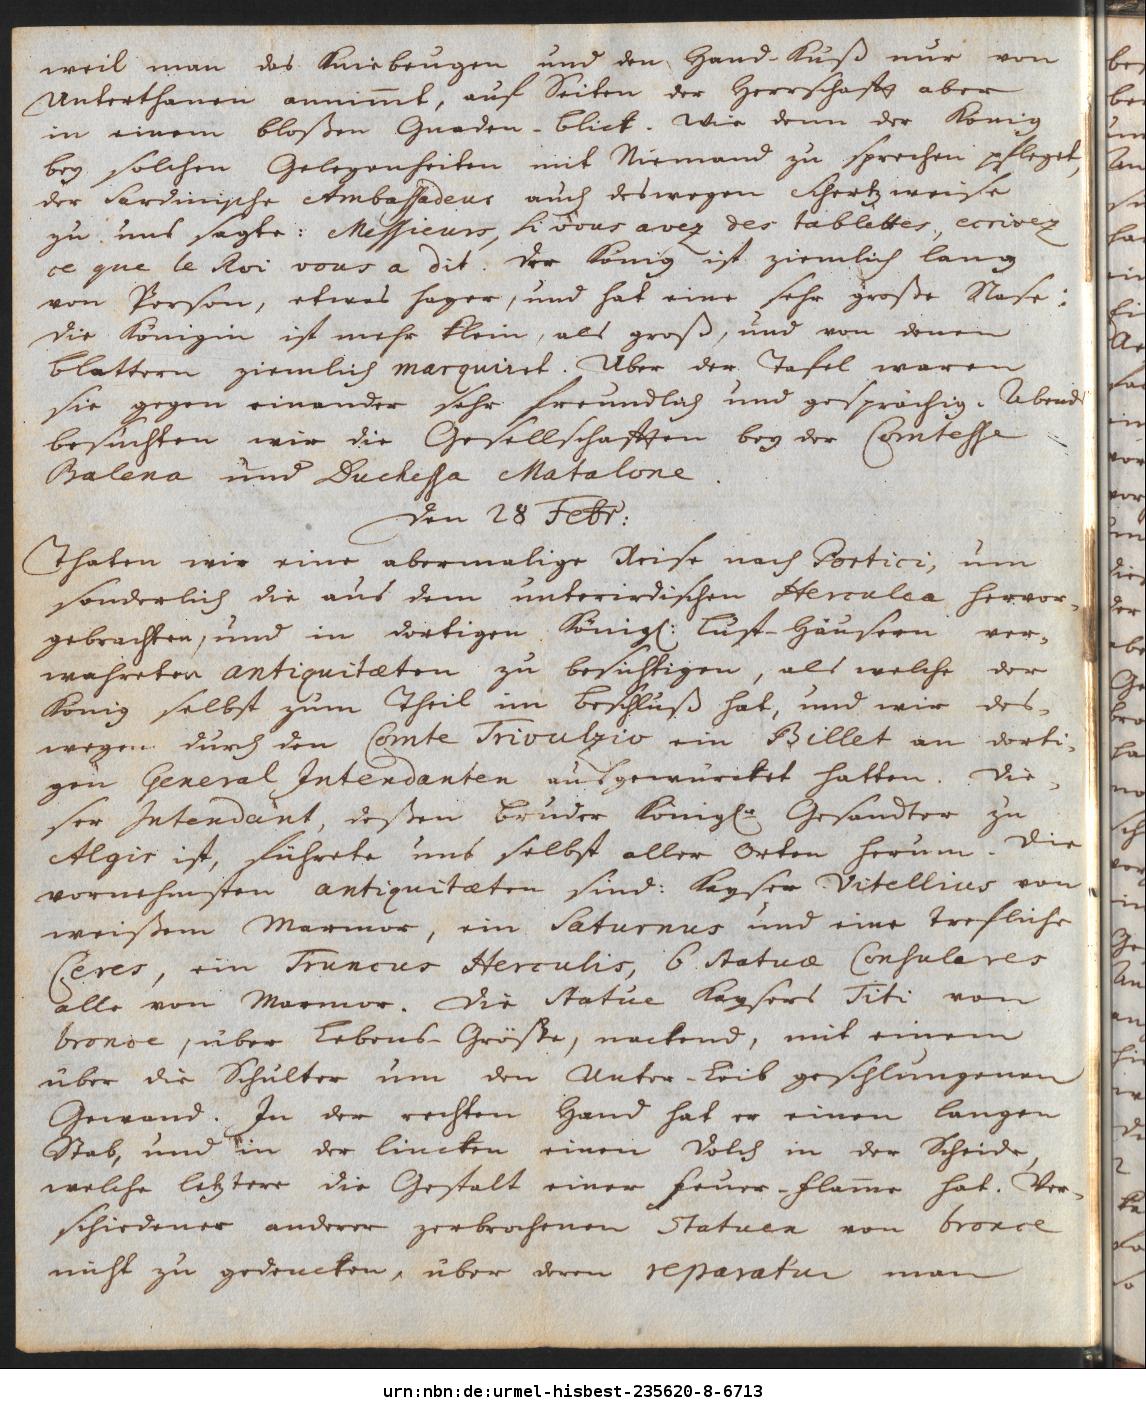 weil man das Kniebeugen und den Hand-Kuß nur von
Unterthanen annim̄t, auf Seiten der Herrschafft aber
in einem bloßen Gnaden-blick. Wie denn der König
bey solchen Gelegenheiten mit Niemand zu sprechen pfleget,
der Sardinische Ambassadeur auch deswegen Schertzweise
zu uns sagte: Messieurs, si vous avez des tablettes, ecrivez
ce que le Roi vous a dit. Der König ist ziemlich lang
von Person, etwas hager, und hat eine sehr große Nase:
die Königin ist mehr klein, als groß, und von denen
blattern ziemlich marquiret. Uber der Tafel waren
sie gegen einander sehr freundlich und gesprächig. Abends
besuchten wir die Gesellschafften bey der Comtesse
Balena und Duchessa Matalone.
Den 28 Febr:
Thaten wir eine abermalige Reise nach Portici, um
sonderlich die aus dem unterirdischen Herculea hervor-
gebrachten, und in dortigen Königl: Lust-Häusern ver-
wahreten antiquitæten zu besichtigen, als welche der
König selbst zum Theil im beschluß hat, und wir des-
wegen durch den Comte Trivulzio ein Billet an dorti-
gen General Intendanten ausgewürcket hatten. Die-
ser Intendant, deßen bruder Königl. Gesandter zu
Algir ist, führete uns selbst aller Orten herum. Die
vornehmsten antiquitæten sind: Kayser Vitellius von
weißem Marmor, ein Saturnus und eine trefliche
Ceres, ein Truncus Herculis, 6 Statuæ Consulares
alle von Marmor. Die Statue Kaysers Titi von
bronce, über Lebens-Größe, nackend, mit einem
über die Schulter um den Unter-Leib geschlungenen
Gewand. In der rechten Hand hat er einen langen
Stab, und in der lincken einen Dolch in der Scheide,
welche letztere die Gestalt einer Feuer-Flam̄e hat. Ver-
schiedener anderer zerbrochenen Statuen von bronce
nicht zu gedencken, über deren reparatur man
urn:nbn:de:urmel-hisbest-235620-8-6713